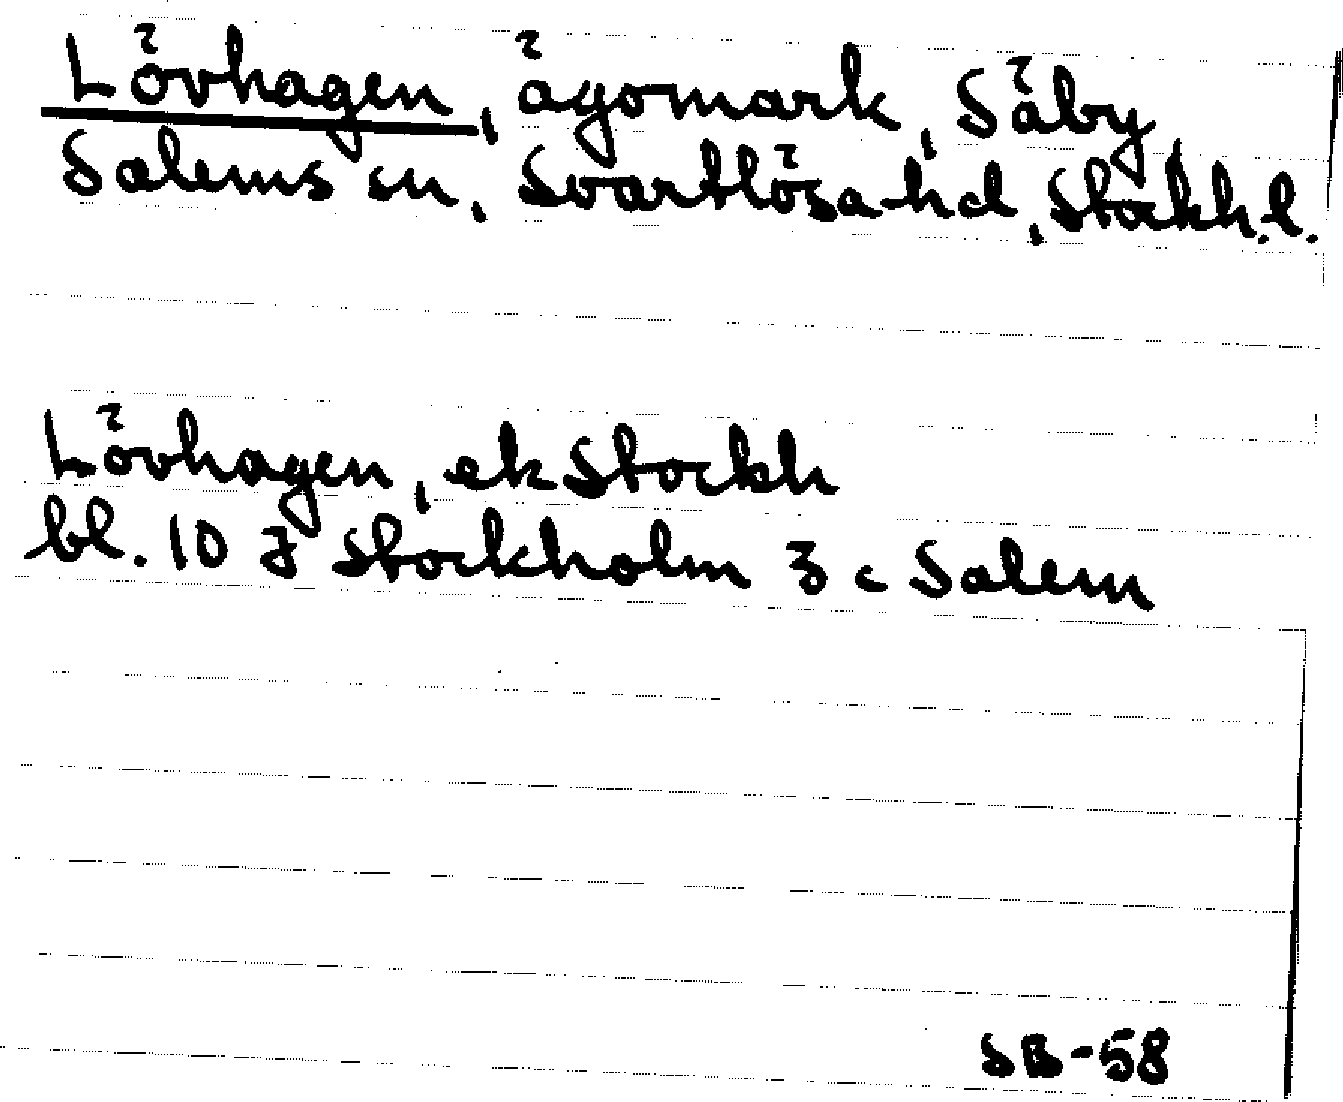 Lövhagen, ägomark, Säby,
Salems sn, Svartlösa hd, Stockh. l.
Lövhagen, ek Stockh
bl. 10 J Stockholm 3 c Salem
SB-58